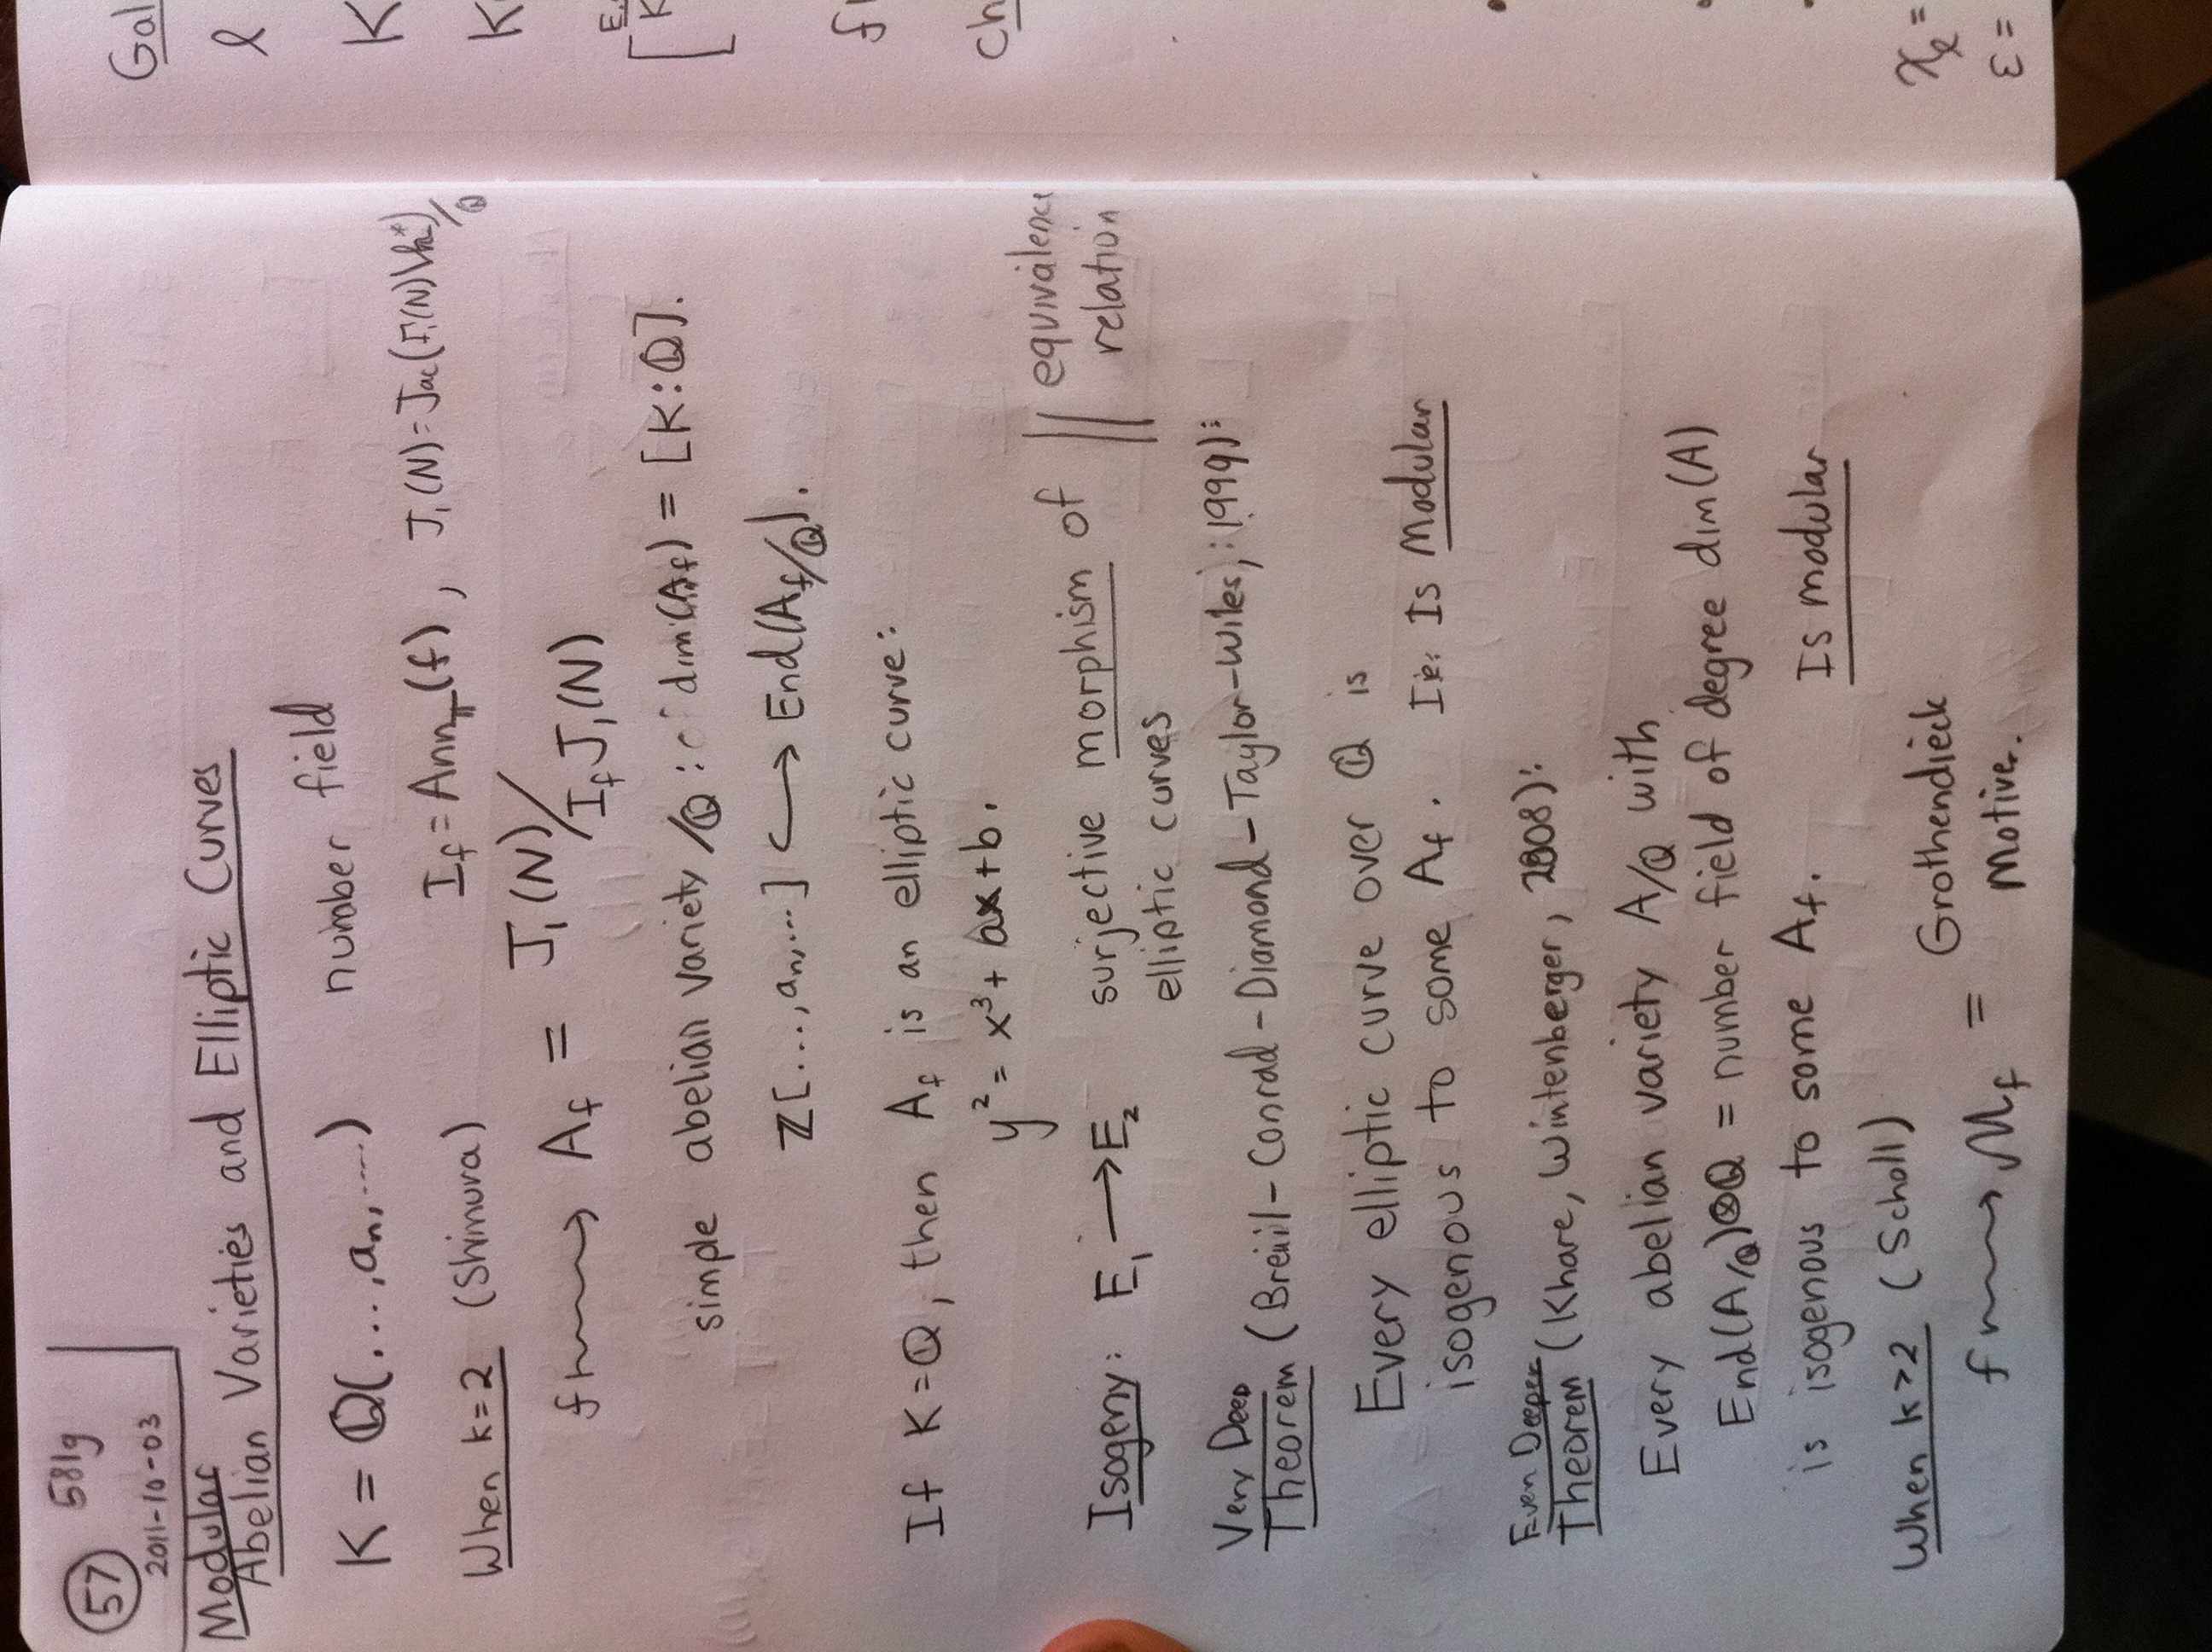 57 581g
2011-10-03
Modular
Abelian Varieties and Elliptic Curves
K = Q(...,aₙ,...) number field
When k=2 (Shimura) I_f = Ann_𝕋(f), J₁(N) = Jac(Γ₁(N)\h*)/Q
f ⟿ A_f = J₁(N)/I_f J₁(N)
simple abelian variety /Q : dim(A_f) = [K:Q].
Z[...,aₙ,...] ↪ End(A_f/Q).
If K=Q, then A_f is an elliptic curve:
y² = x³ + ax + b.
Isogeny: E₁ → E₂ surjective morphism of || equivalence
elliptic curves relation
Very Deep
Theorem (Breuil-Conrad-Diamond-Taylor-Wiles; :1999):
Every elliptic curve over Q is
isogenous to some A_f. Ie: Is Modular
Even Deeper
Theorem (Khare, Wintenberger, 2008):
Every abelian variety A/Q with
End(A/Q)⊗Q = number field of degree dim(A)
is isogenous to some A_f. Is modular
When k>2 (Scholl)
f ⟿ M_f = Grothendieck
Motive.
Gal
ℓ
K
K
[
f
ch
χ_ℓ =
ε =